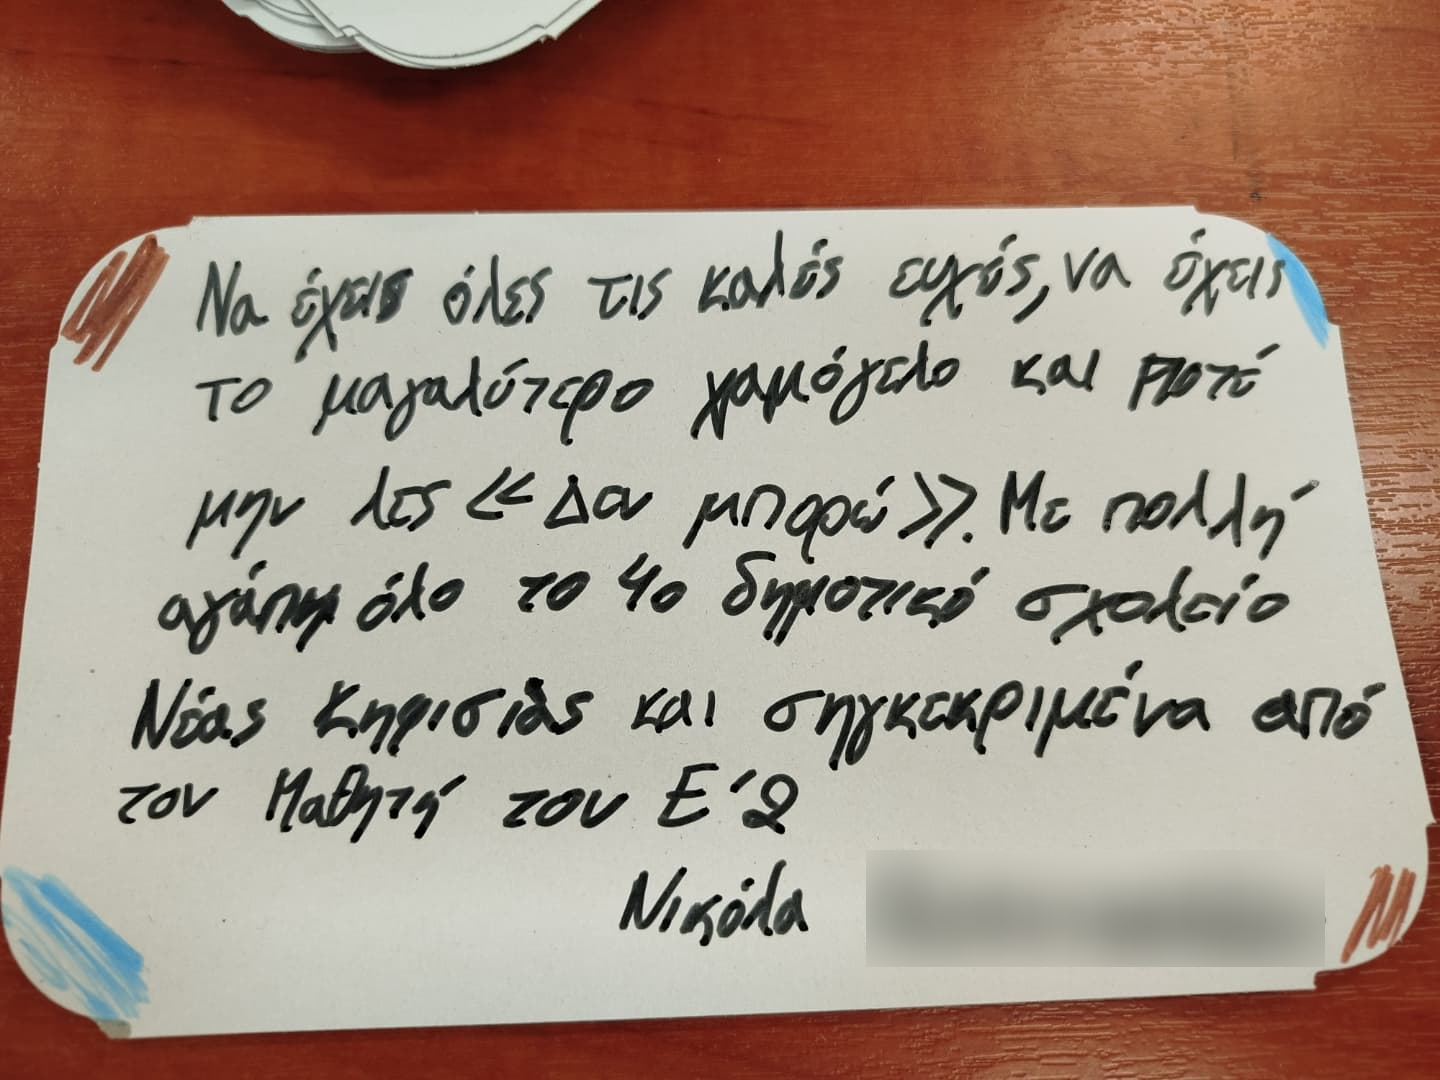 Να έχεις όλες τις καλές ευχές, να έχεις
το μαγαλύτερο χαμόγελο και ποτέ
μην λες << Δεν μπορώ >>. Με πολλή
αγάπη όλο το 4ο δημοτικό σχολείο
Νέας Κηφισιάς και σηγκεκριμένα από
τον Μαθητή του Ε΄2
Νικόλα